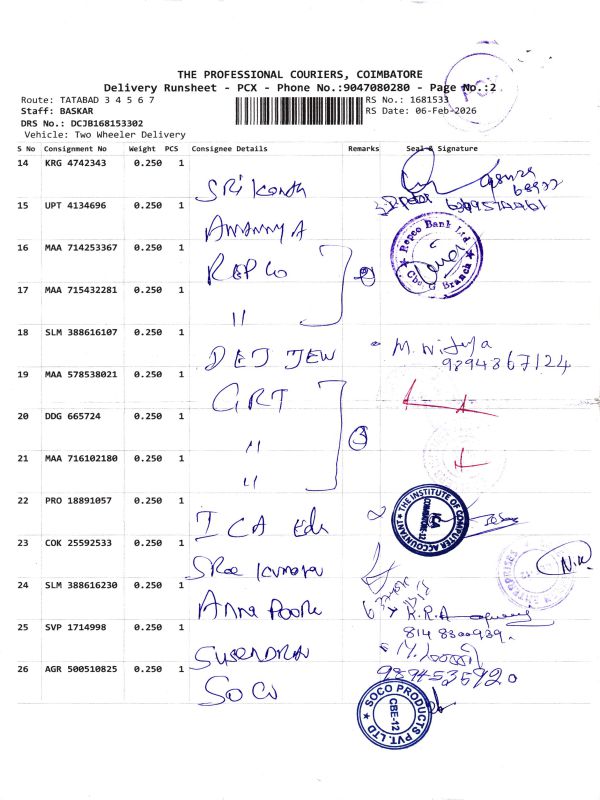 THE PROFESSIONAL COURIERS, COIMBATORE
Delivery Runsheet - PCX - Phone No.:9047080280 - Page No.:2
Route: TATABAD 3 4 5 6 7
RS No.: 1681533
Staff: BASKAR
RS Date: 06-Feb-2026
DRS No.: DCJB168153302
Vehicle: Two Wheeler Delivery
S No Consignment No Weight PCS Consignee Details Remarks Seal & Signature
14 KRG 4742343 0.250 1
Sri Kanth
15 UPT 4134696 0.250 1
Amanny A
16 MAA 714253367 0.250 1
REPCO 2
Repco Bank Ltd
Cbe G Branch
17 MAA 715432281 0.250 1
"
18 SLM 388616107 0.250 1
DET JEW
M. Vidya
9894867124
19 MAA 578538021 0.250 1
GRT
20 DDG 665724 0.250 1
" 3
21 MAA 716102180 0.250 1
"
22 PRO 18891057 0.250 1
ICA Edu
THE INSTITUTE OF COMPUTER ACCOUNTANT
ICA
COIMBATORE-12
23 COK 25592533 0.250 1
Sree Kumara
24 SLM 388616230 0.250 1
Anna Poorna
R.R.A
814 8300939.
25 SVP 1714998 0.250 1
Surendran
9894535920
26 AGR 500510825 0.250 1
SOCO
SOCO PRODUCTS PVT. LTD
CBE-12